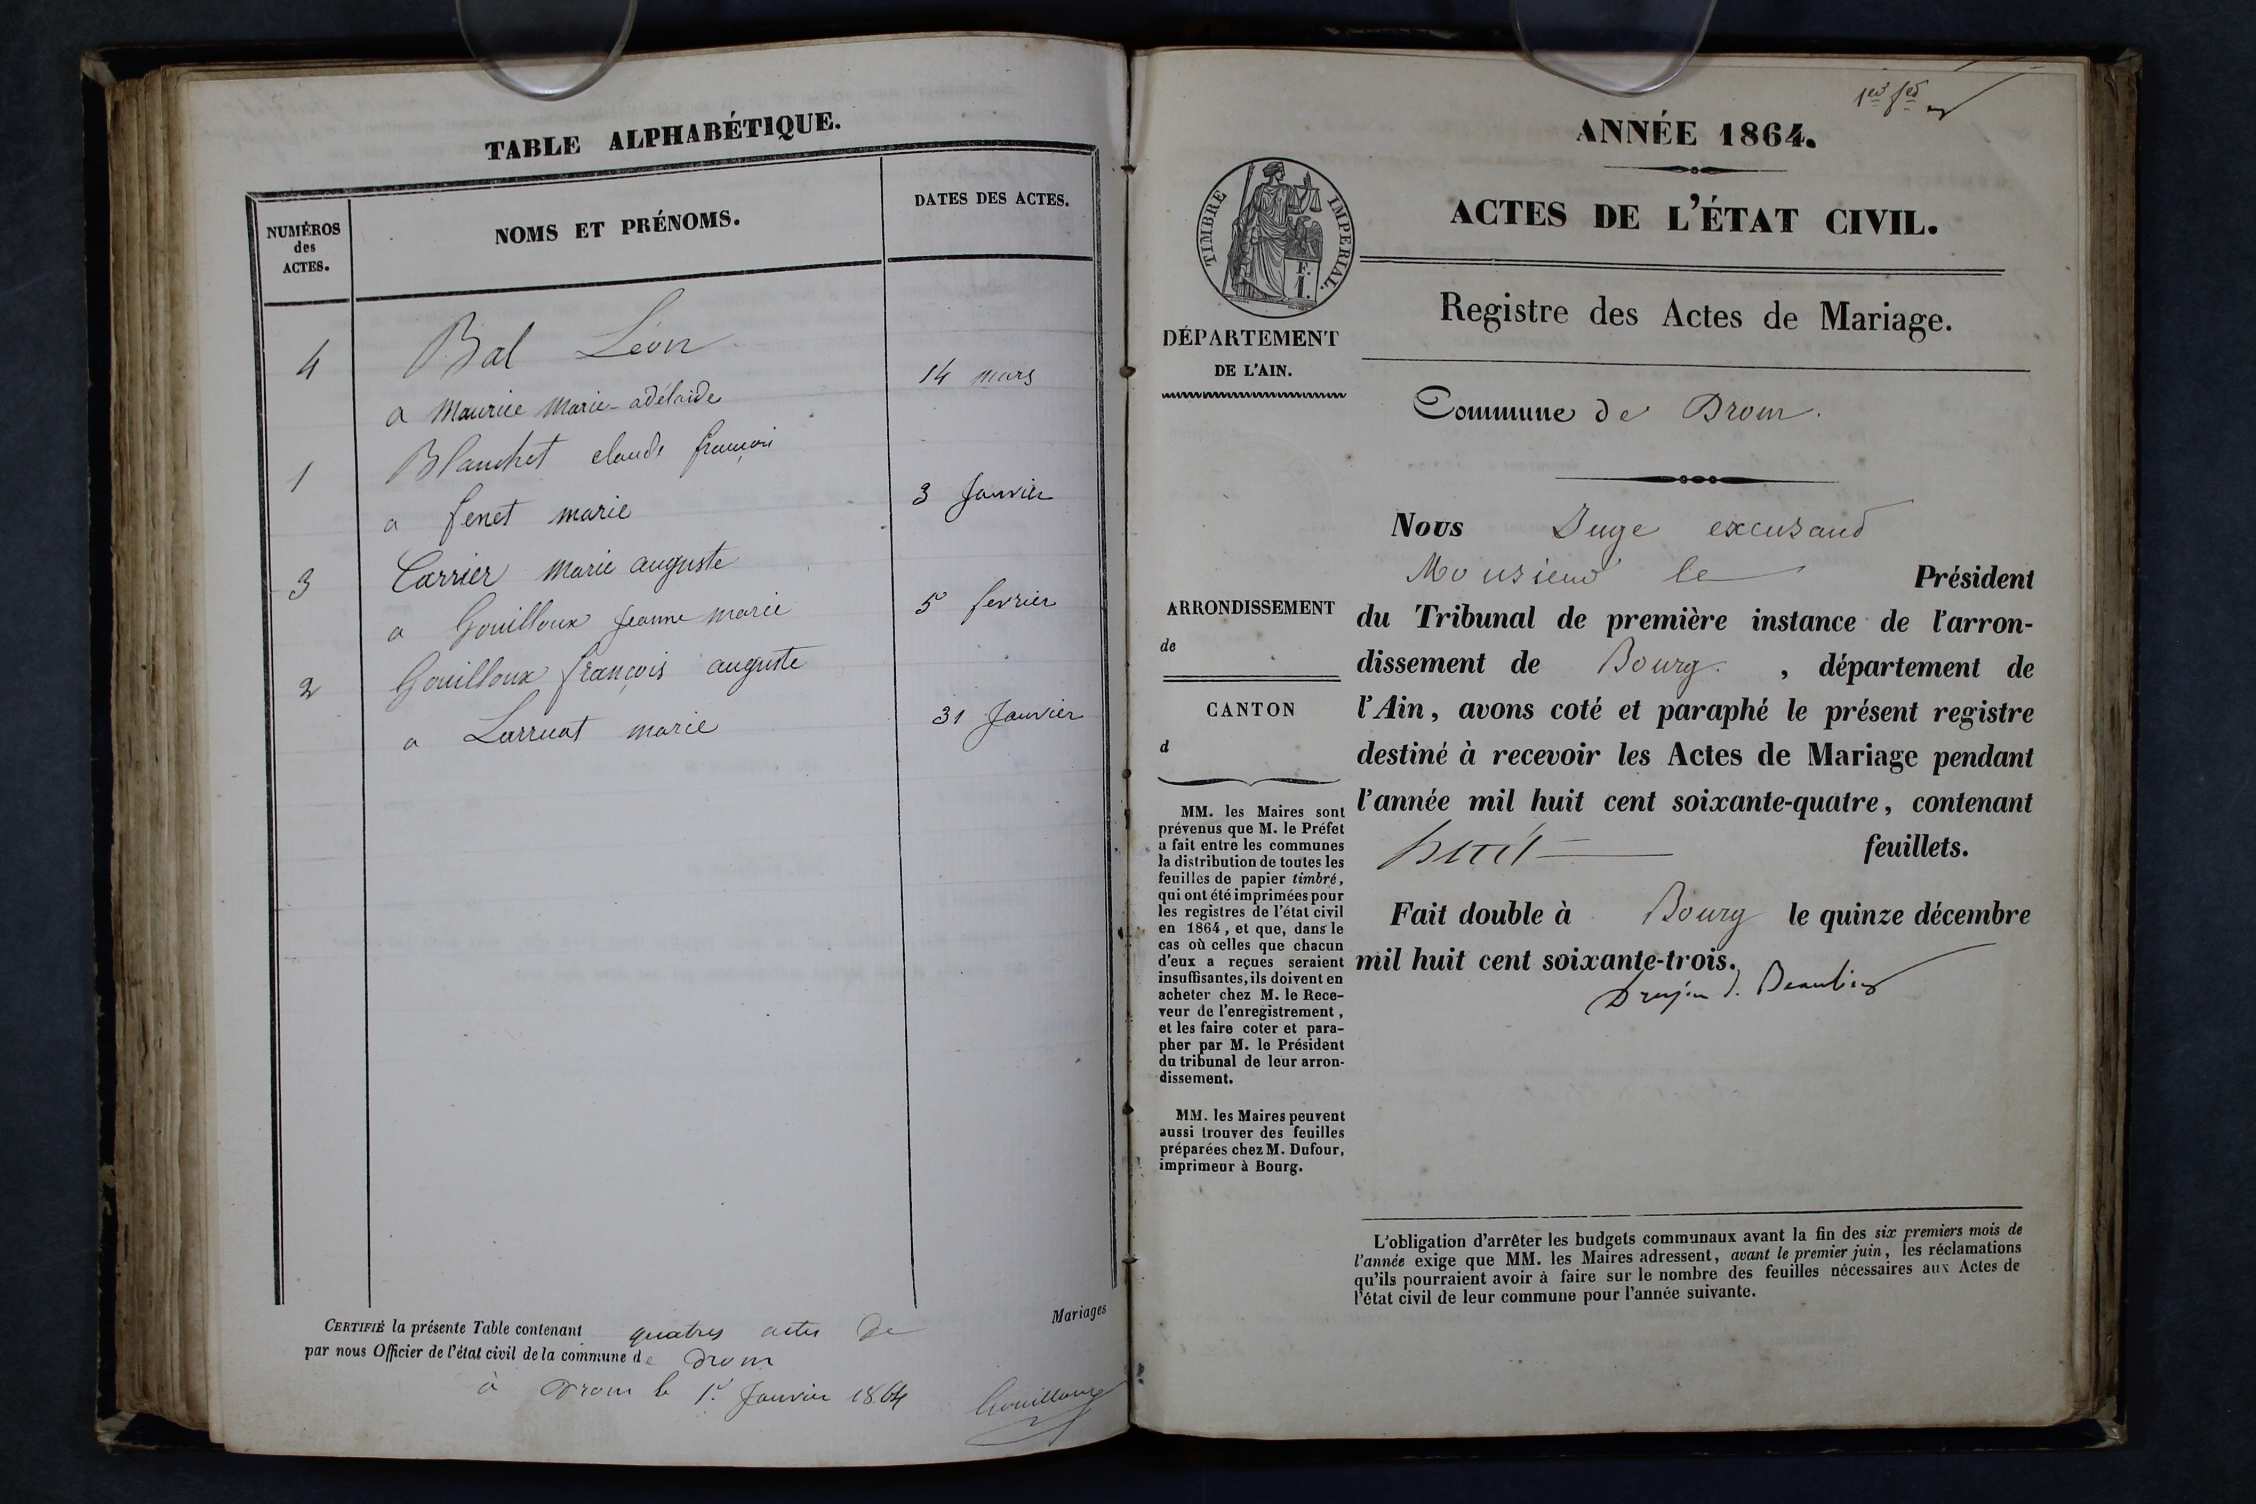 TABLE ALPHABÉTIQUE.
NUMÉROS
des
ACTES.
NOMS ET PRÉNOMS.
DATES DES ACTES.
4 Bal Léon
a Maurice Marie-adélaide 14 mars
1 Blanchet claude françois
a fenet marie 3 Janvier
3 Carrier marie auguste
a Gouilloux Jeanne marie 5 fevrier
2 Gouilloux françois auguste
a Larruat marie 31 Janvier
CERTIFIÉ la présente Table contenant quatres actes De Mariages
par nous Officier de l'état civil de la commune de Drom
à Drom le 1er Janvier 1864
Gouilloux
ANNÉE 1864.
ACTES DE L'ÉTAT CIVIL.
TIMBRE IMPERIAL.
F.
1.
Registre des Actes de Mariage.
DÉPARTEMENT
DE L'AIN.
Commune de Drom.
ARRONDISSEMENT
de
CANTON
d
MM. les Maires sont
prévenus que M. le Préfet
a fait entre les communes
la distribution de toutes les
feuilles de papier timbré,
qui ont été imprimées pour
les registres de l'état civil
en 1864, et que, dans le
cas où celles que chacun
d'eux a reçues seraient
insuffisantes, ils doivent en
acheter chez M. le Rece-
veur de l'enregistrement,
et les faire coter et para-
pher par M. le Président
du tribunal de leur arron-
dissement.
MM. les Maires peuvent
aussi trouver des feuilles
préparées chez M. Dufour,
imprimeur à Bourg.
Nous Juge excusant
Monsieur le Président
du Tribunal de première instance de l'arron-
dissement de Bourg, département de
l'Ain, avons coté et paraphé le présent registre
destiné à recevoir les Actes de Mariage pendant
l'année mil huit cent soixante-quatre, contenant
huit feuillets.
Fait double à Bourg le quinze décembre
mil huit cent soixante-trois.
L'obligation d'arrêter les budgets communaux avant la fin des six premiers mois de
l'année exige que MM. les Maires adressent, avant le premier juin, les réclamations
qu'ils pourraient avoir à faire sur le nombre des feuilles nécessaires aux Actes de
l'état civil de leur commune pour l'année suivante.